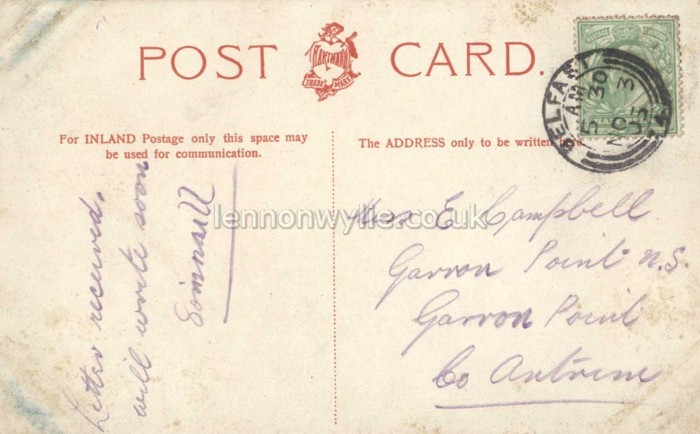 POST CARD.
HARTMANN
TRADE MARK
For INLAND Postage only this space may
be used for communication.
The ADDRESS only to be written here.
BELFAST
5 30 AM
NO 3
05
Letter received.
will write soon
lennonwylie.co.uk
Miss E Campbell
Garron Point N.S.
Garron Point
Co Antrim